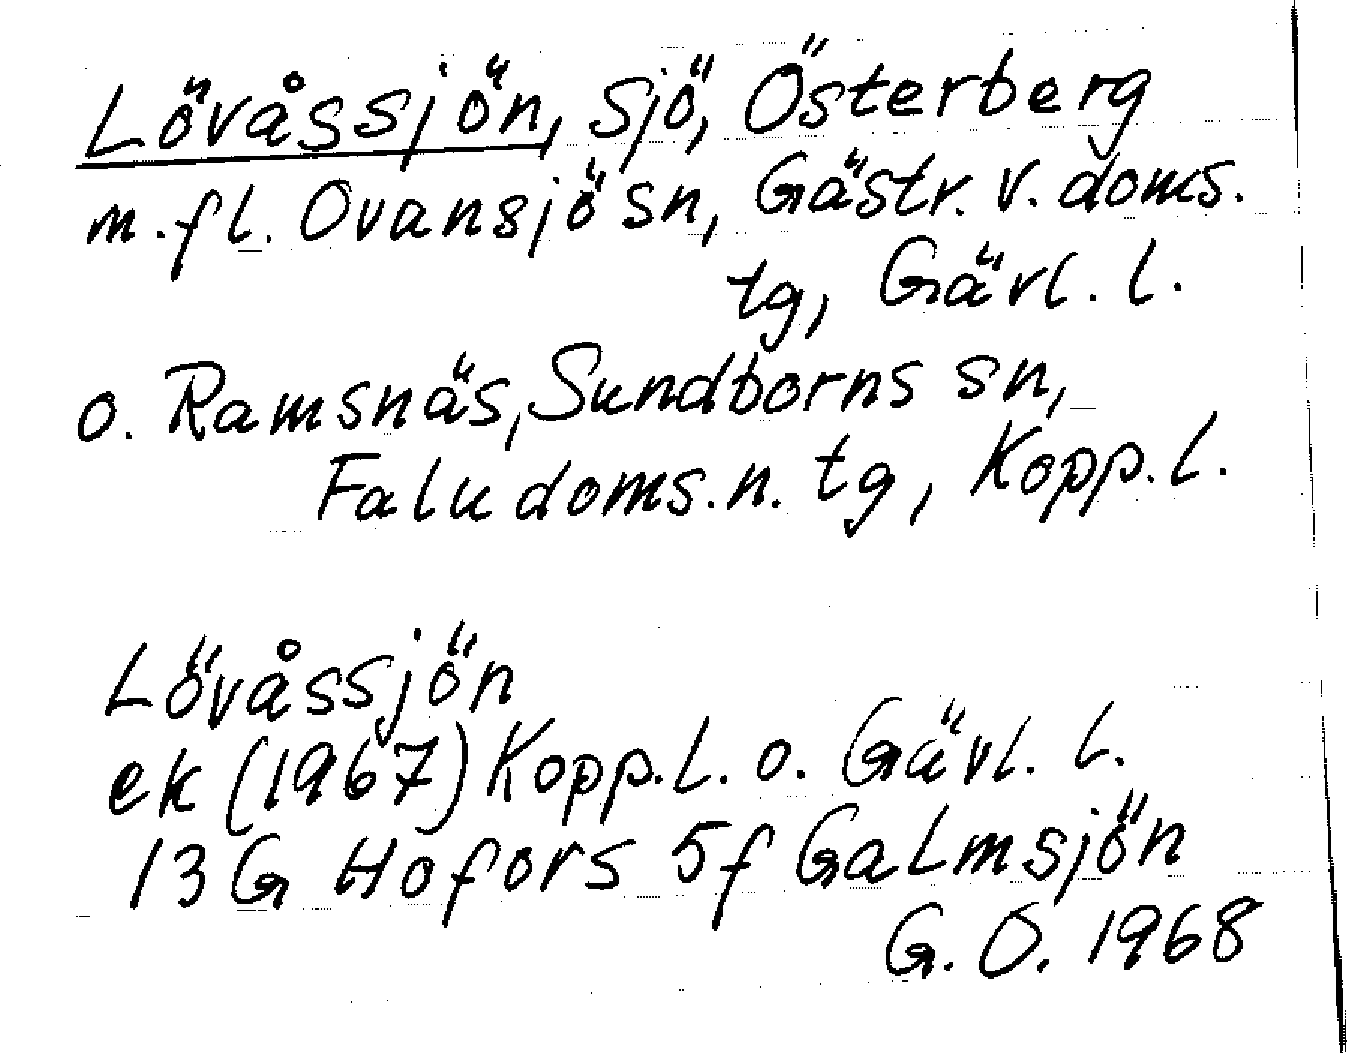 Lövåssjön, sjö, Österberg
m.fl. Ovansjö sn, Gästr. v. doms.
tg, Gävl. l.
o. Ramsnäs, Sundborns sn,
Falu doms. n. tg, Kopp. l.
Lövåssjön
ek (1967) Kopp. l. o. Gävl. l.
13G Hofors 5f Galmsjön
G. O. 1968